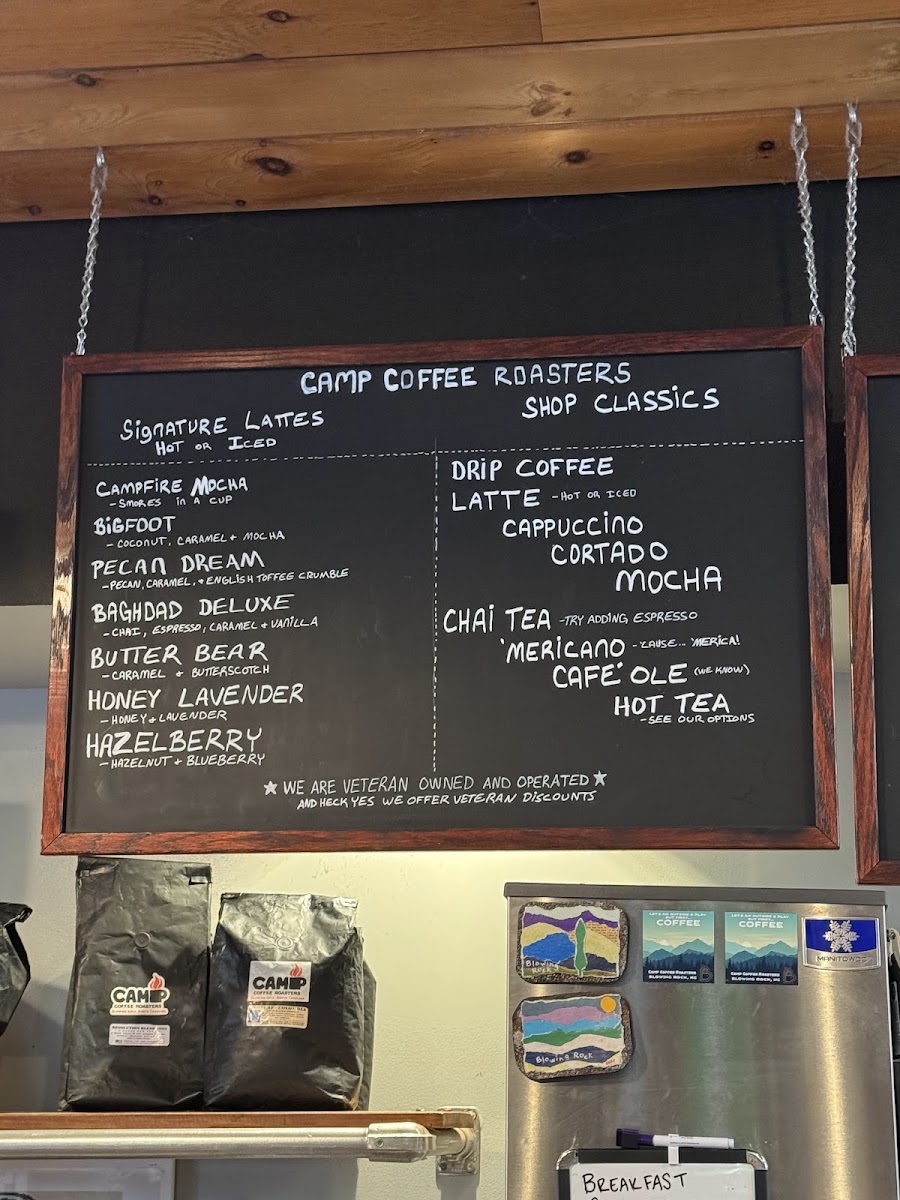 CAMP COFFEE ROASTERS
SIGNATURE LATTES
HOT OR ICED
CAMPFIRE MOCHA
- SMORES IN A CUP
BIGFOOT
- COCONUT, CARAMEL + MOCHA
PECAN DREAM
- PECAN, CARAMEL, + ENGLISH TOFFEE CRUMBLE
BAGHDAD DELUXE
- CHAI, ESPRESSO, CARAMEL + VANILLA
BUTTER BEAR
- CARAMEL + BUTTERSCOTCH
HONEY LAVENDER
- HONEY + LAVENDER
HAZELBERRY
- HAZELNUT + BLUEBERRY
SHOP CLASSICS
DRIP COFFEE
LATTE - HOT OR ICED
CAPPUCCINO
CORTADO
MOCHA
CHAI TEA - TRY ADDING ESPRESSO
'MERICANO - 'CAUSE... 'MERICA!
CAFE' OLE (WE KNOW)
HOT TEA
- SEE OUR OPTIONS
★ WE ARE VETERAN OWNED AND OPERATED ★
AND HECK YES WE OFFER VETERAN DISCOUNTS
CAMP
COFFEE ROASTERS
BLOWING ROCK, NORTH CAROLINA
CAMP
COFFEE ROASTERS
BLOWING ROCK, NORTH CAROLINA
Blowing Rock
Blowing Rock
LET'S GO OUTSIDE & PLAY
BUT FIRST,
COFFEE
CAMP COFFEE ROASTERS
BLOWING ROCK, NC
LET'S GO OUTSIDE & PLAY
BUT FIRST,
COFFEE
CAMP COFFEE ROASTERS
BLOWING ROCK, NC
MANITOWOC
BREAKFAST